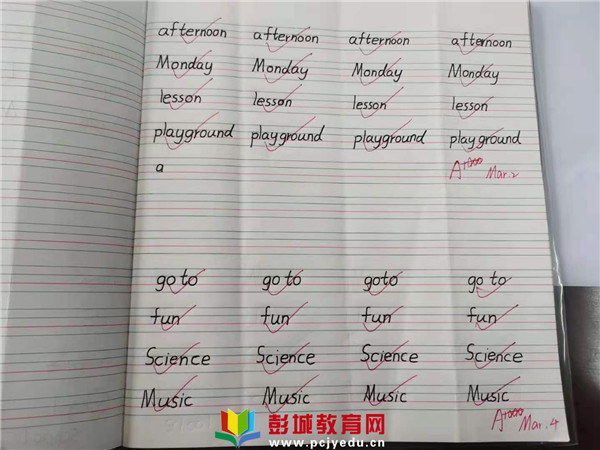 afternoon afternoon afternoon afternoon
Monday Monday Monday Monday
lesson lesson lesson lesson
playground playground playground playground
a
Mar.2
go to go to go to go to
fun fun fun fun
Science Science Science Science
Music Music Music Music
Mar.4
彭城教育网
www.pcjyedu.cn